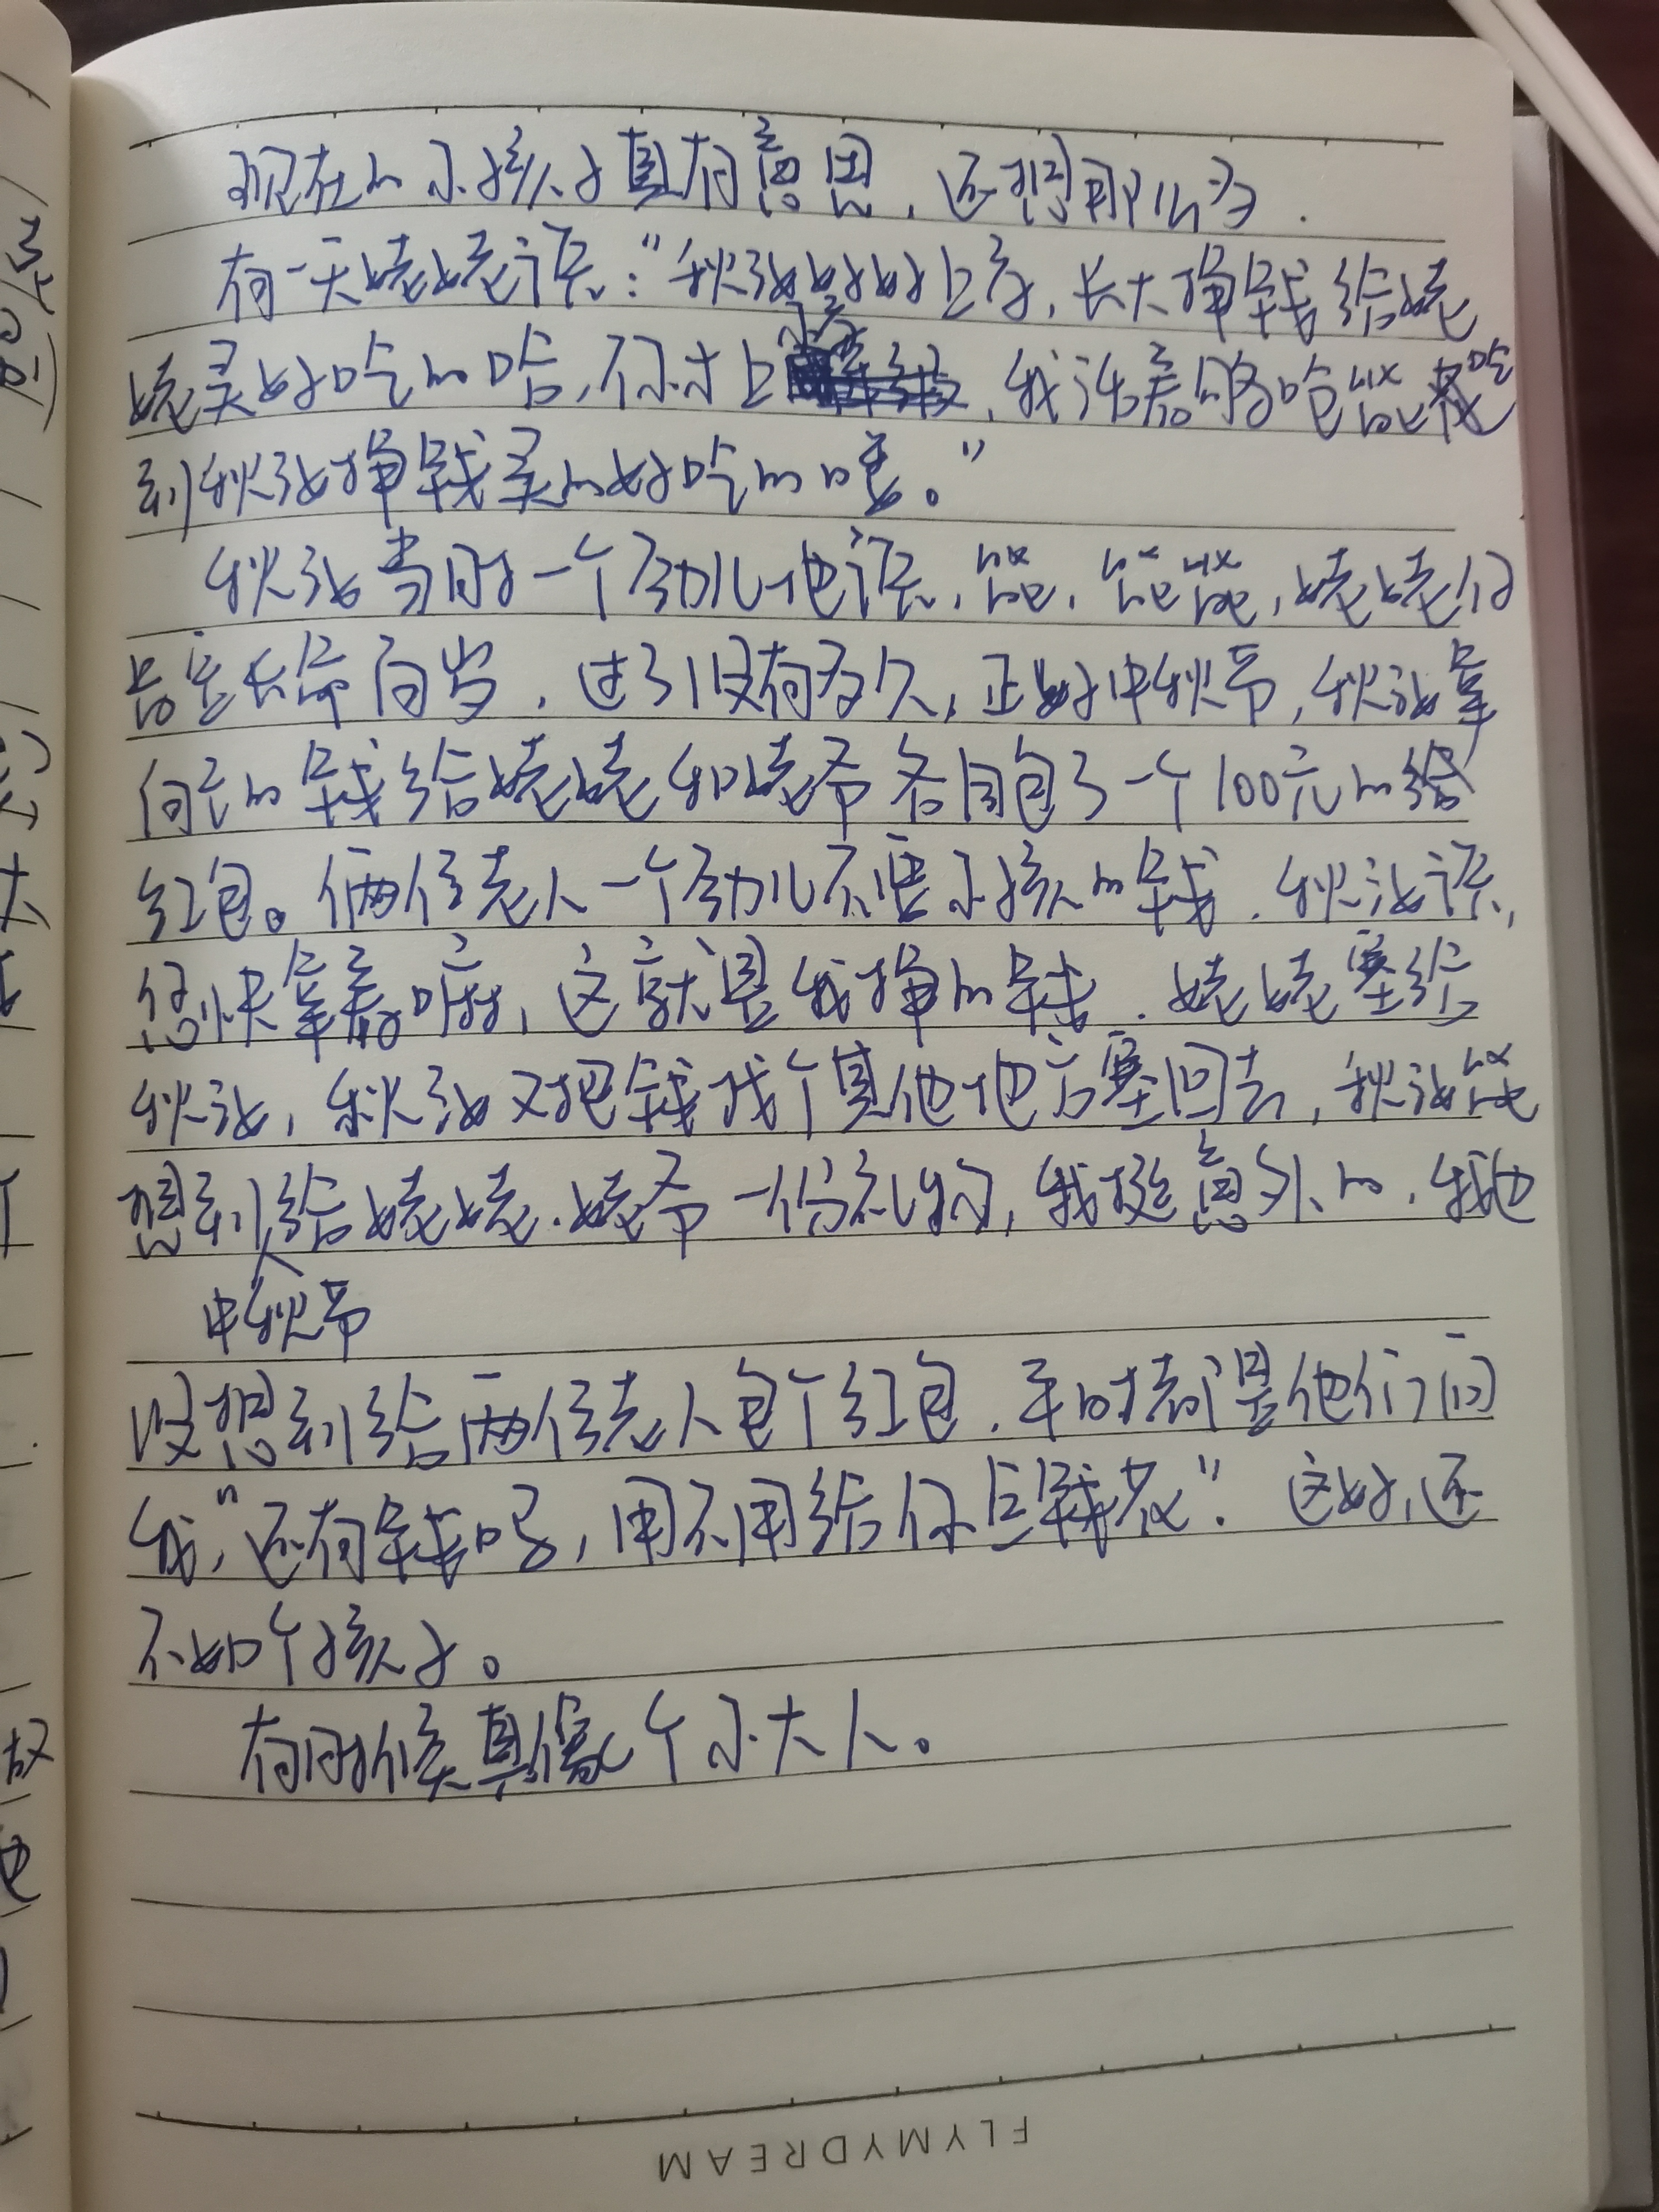 现在的小孩子真有意思，还想那么多.
有一天姥姥说:“秋泓好好上学,长大挣钱给姥
姥买好吃的哈,你才上学,我活着够呛能花
到秋泓挣钱买的好吃的喽。”
秋泓当时一个劲儿地说,能,能能,姥姥你
肯定长命百岁.过了没有多久,正好中秋节,秋泓拿
自己的钱给姥姥和姥爷各自包了一个100元的
红包。俩位老人一个劲儿不要小孩的钱.秋泓说,
您快拿着嘛,这就是我挣的钱.姥姥塞给
秋泓,秋泓又把钱找个其他地方塞回去,秋泓能
想到给姥姥、姥爷一份礼物,我挺意外的.我也
中秋节
没想到给两位老人包个红包.平时都是他们问
我,“还有钱吗,用不用给你点钱花”.这好,还
不如个孩子。
有时候真像个小大人。
FLYMYDREAM